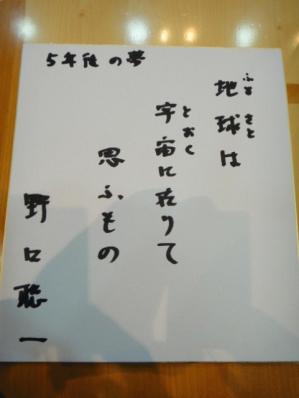 5年後の夢
ふるさと
地球は
とおく
宇宙に在りて
思ふもの
野口聡一